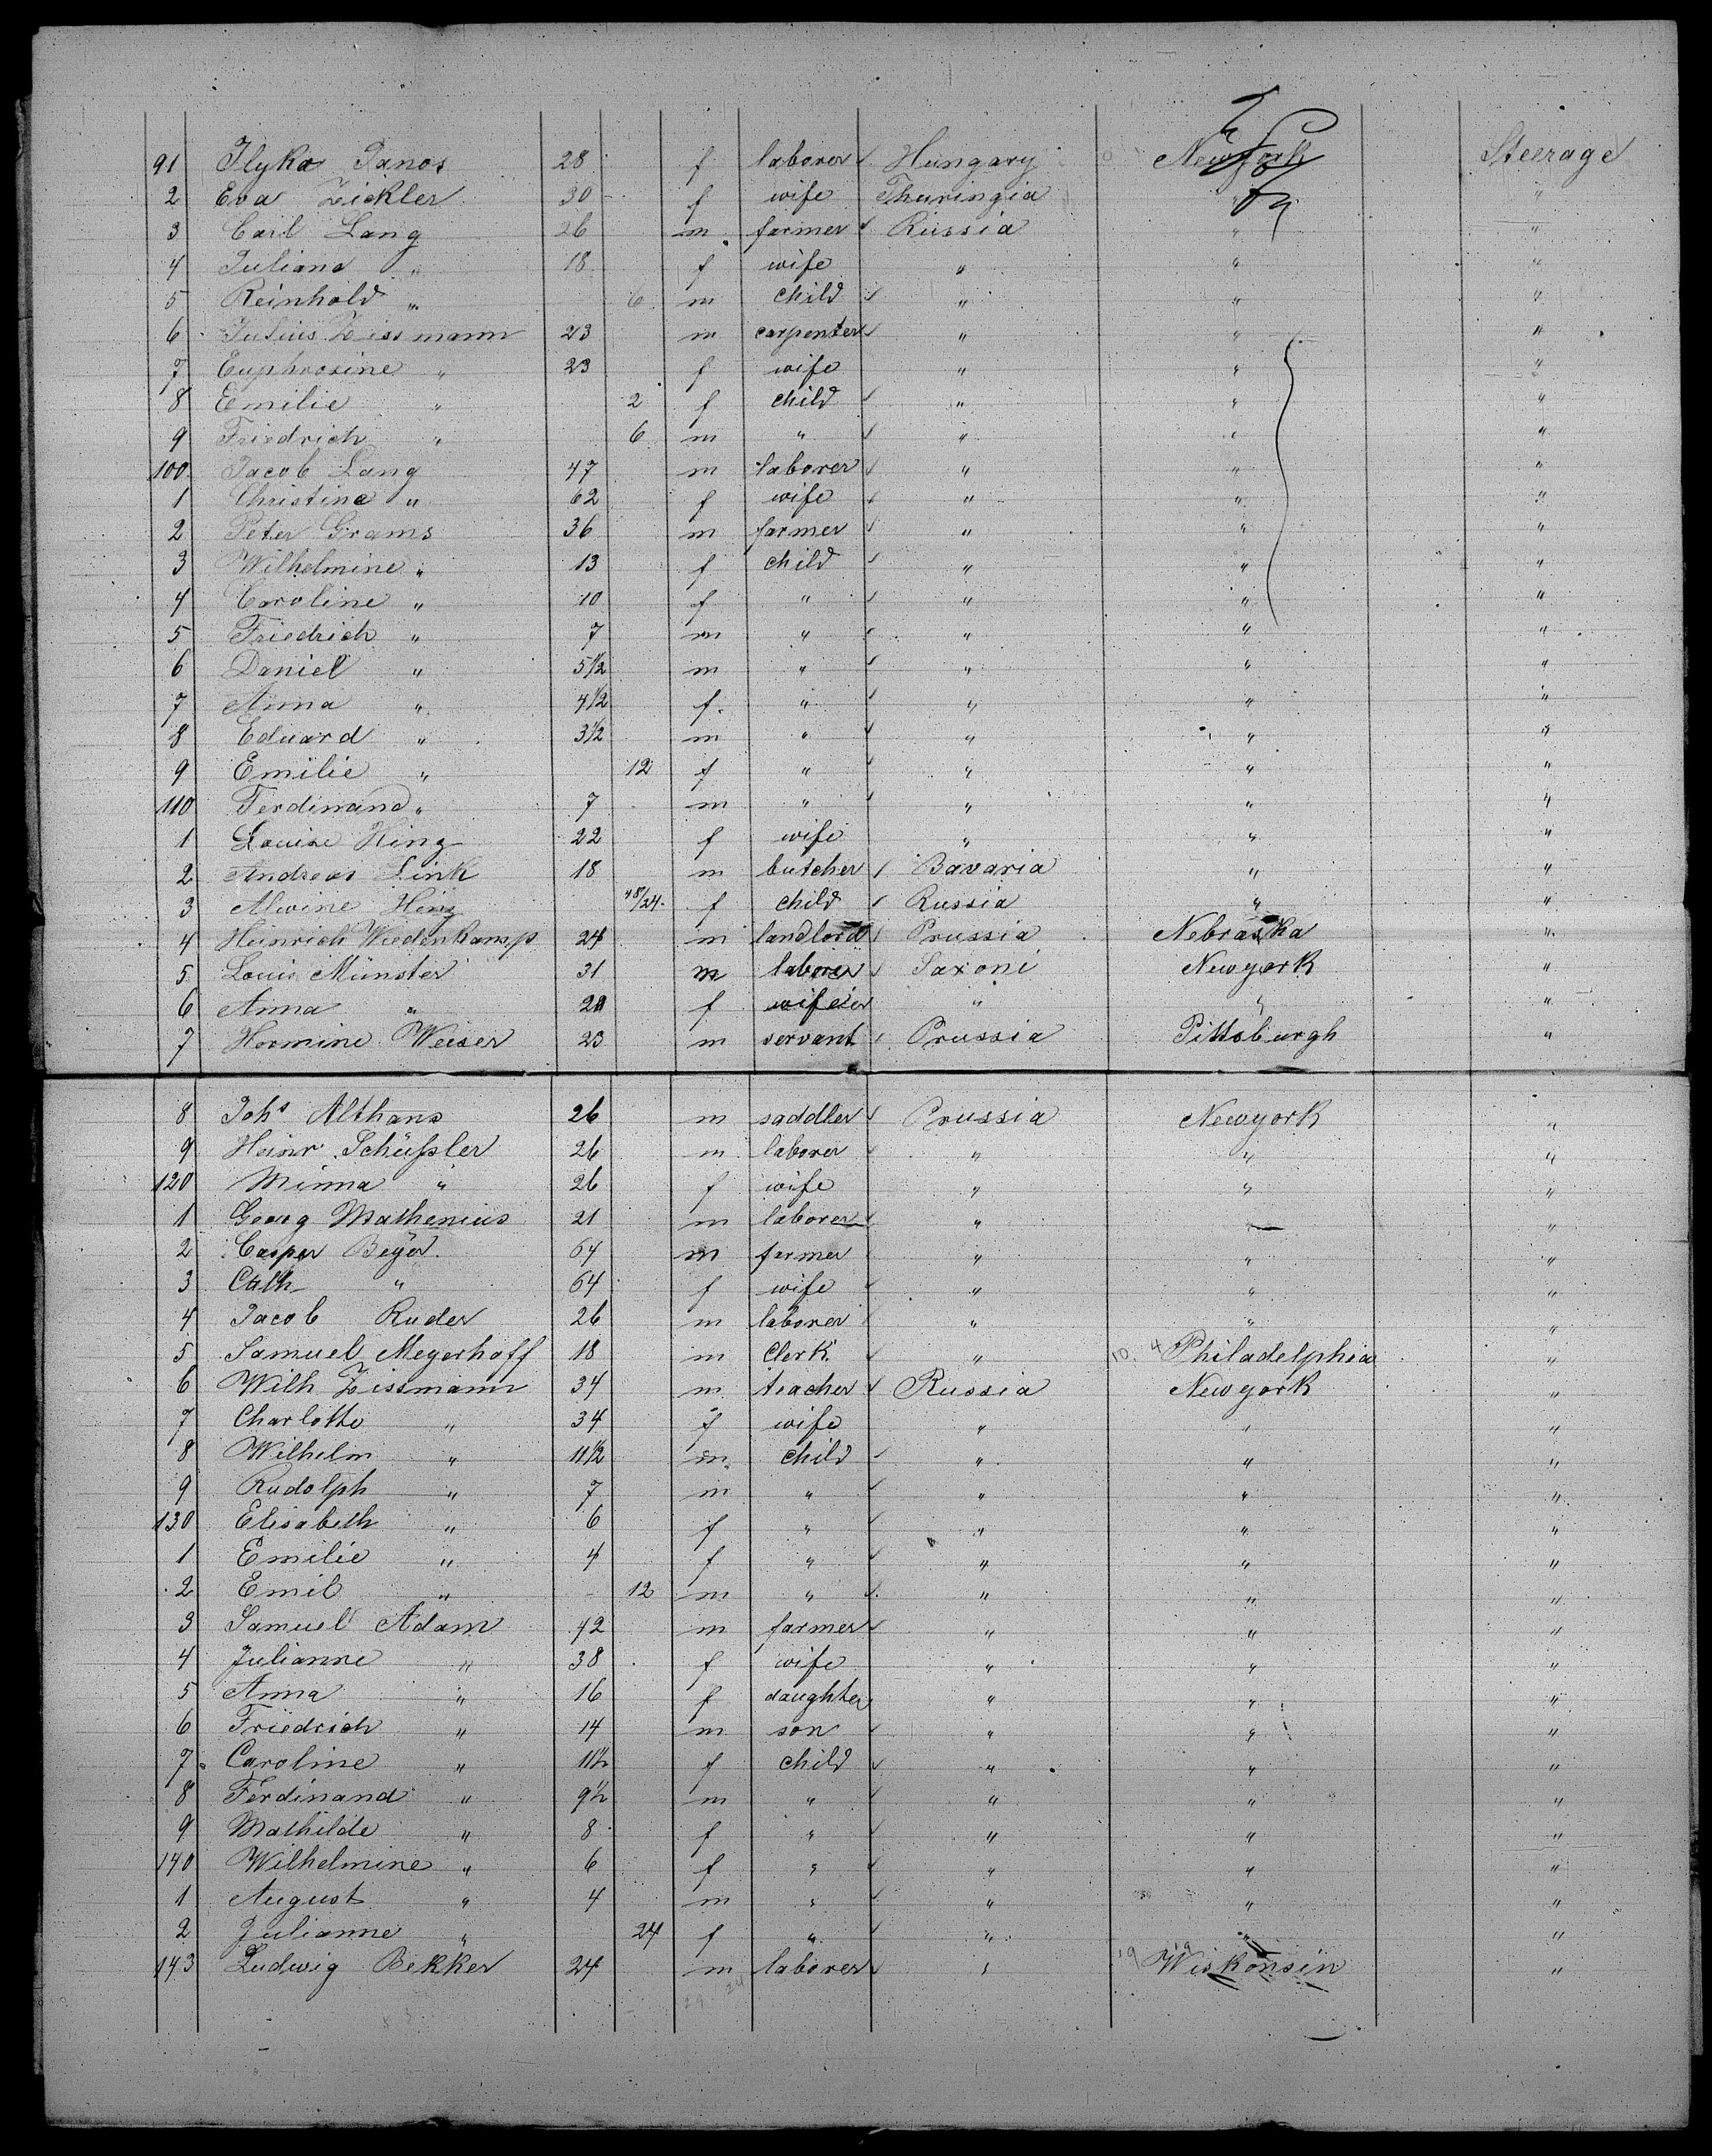 91 Ilyka Janos 28 f laborer Hungary Newyork Steerage
2 Eva Zickler 30 f wife Thuringia " "
3 Carl Lang 26 m farmer Russia " "
4 Juliana " 18 f wife " " "
5 Reinhold " 6 m child " " "
6 Julius Zissmann 23 m carpenter " " "
7 Euphrosine " 23 f wife " " "
8 Emilie " 2 f child " " "
9 Friedrich " 6 m " " " "
100 Jacob Lang 47 m laborer " " "
1 Christine " 62 f wife " " "
2 Peter Grams 36 m farmer " " "
3 Wilhelmine " 13 f child " " "
4 Caroline " 10 f " " " "
5 Friedrich " 7 m " " " "
6 Daniel " 5 1/2 m " " " "
7 Anna " 4 1/2 f " " " "
8 Eduard " 3 1/2 m " " " "
9 Emilie " 12 f " " " "
110 Ferdinand " 7 m " " " "
1 Louise Hinz 22 f wife " " "
2 Andreas Link 18 m butcher Bavaria " "
3 Alwine Hinz /24 f child Russia " "
4 Heinrich Wiedenkamp 24 m landlord Prussia Nebraska "
5 Louis Münster 31 m laborer Saxoni Newyork "
6 Anna " f wife " " "
7 Hermine Weiser 23 m servant Prussia Pittsburgh "
8 Johs Althans 26 m saddler Prussia Newyork "
9 Heinr. Schüssler 26 m laborer " " "
120 Minna " 26 f wife " " "
1 Georg Mathenius 21 m laborer " " "
2 Casper Beyer 64 m farmer " " "
3 Cath " 64 f wife " " "
4 Jacob Ruder 26 m laborer " " "
5 Samuel Meyerhoff 18 m Clerk " Philadelphia "
6 Wilh Zissmann 34 m teacher Russia Newyork "
7 Charlotte " 34 f wife " " "
8 Wilhelm " 11 1/2 m child " " "
9 Rudolph " 7 m " " " "
130 Elisabeth " 6 f " " " "
1 Emilie " 4 f " " " "
2 Emil " 12 m " " " "
3 Samuel Adam 42 m farmer " " "
4 Julianne " 38 f wife " " "
5 Anna " 16 f daughter " " "
6 Friedrich " 14 m son " " "
7 Caroline " 11 1/2 f child " " "
8 Ferdinand " 9 1/2 m " " " "
9 Mathilde " 8 f " " " "
140 Wilhelmine " 6 f " " " "
1 August " 4 m " " " "
2 Julianne " 24 f " " " "
143 Ludwig Bekker 24 m laborer " Wiskonsin "